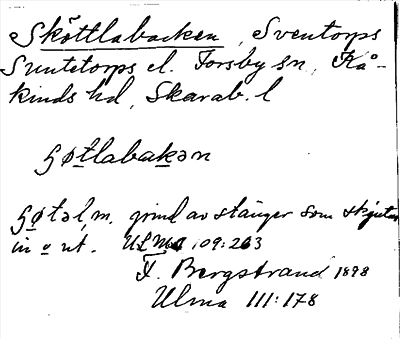 Sköttlabacken, Sventorps
Suntetorps el. Forsby sn, Kå-
kinds hd, Skarab. l
ʃøtlabakən
ʃøtəl, m. grind av stänger som skjutas
in o ut. ULMA 109:263
F. Bergstrand 1898
Ulma 111:178